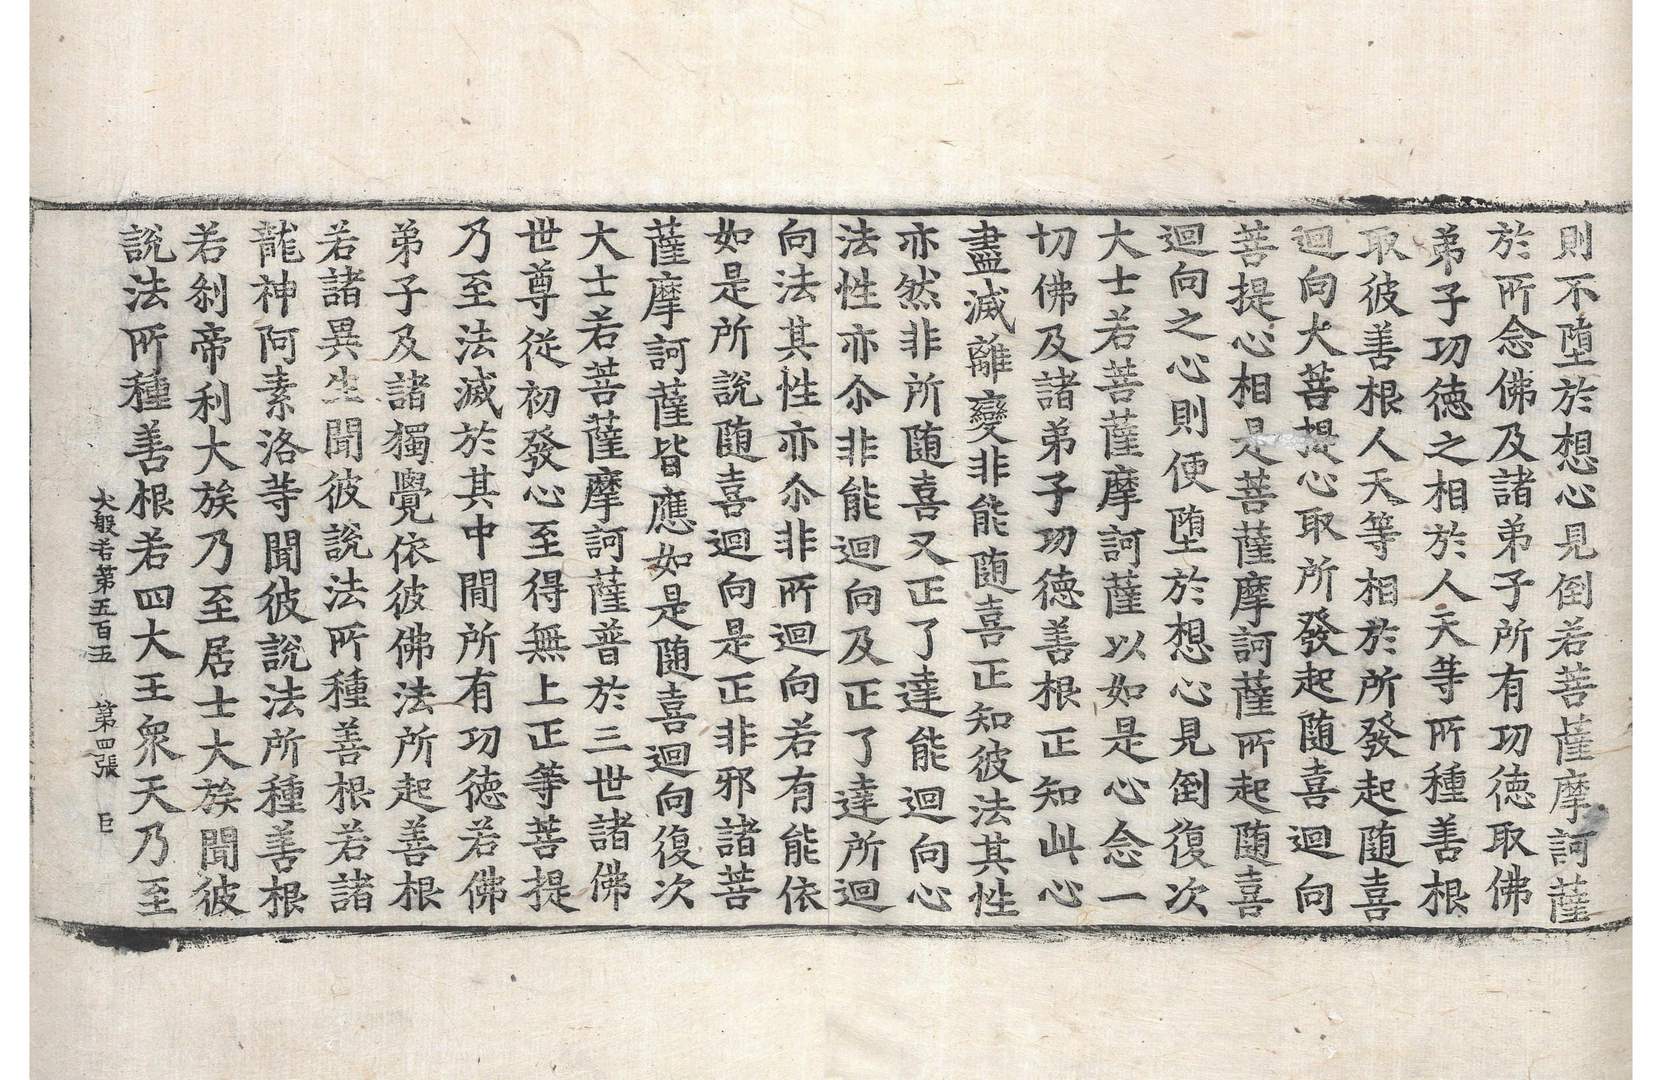 則不墮於想心見倒若菩薩摩訶薩
於所念佛及諸弟子所有功徳取佛
弟子功徳之相於人天等所種善根
取彼善根人天等相於所發起随喜
迴向大菩提心取所發起随喜迴向
菩提心相是菩薩摩訶薩所起随喜
迴向之心則便堕於想心見倒復次
大士若菩薩摩訶薩以如是心念一
切佛及諸弟子功徳善根正知此心
盡滅離變非能随喜正知彼法其性
亦然非所随喜又正了達能迴向心
法性亦尒非能迴向及正了達所迴
向法其性亦尒非所迴向若有能依
如是所說随喜迴向是正非邪諸菩
薩摩訶薩皆應如是随喜迴向復次
大士若菩薩摩訶薩普於三世諸佛
世尊從初發心至得無上正等菩提
乃至法滅於其中間所有功徳若佛
弟子及諸獨覺依彼佛法所起善根
若諸異生聞彼說法所種善根若諸
龍神阿素洛等聞彼說法所種善根
若剎帝利大族乃至居士大族聞彼
說法所種善根若四大王衆天乃至
大般若第五百五 第四張 巨